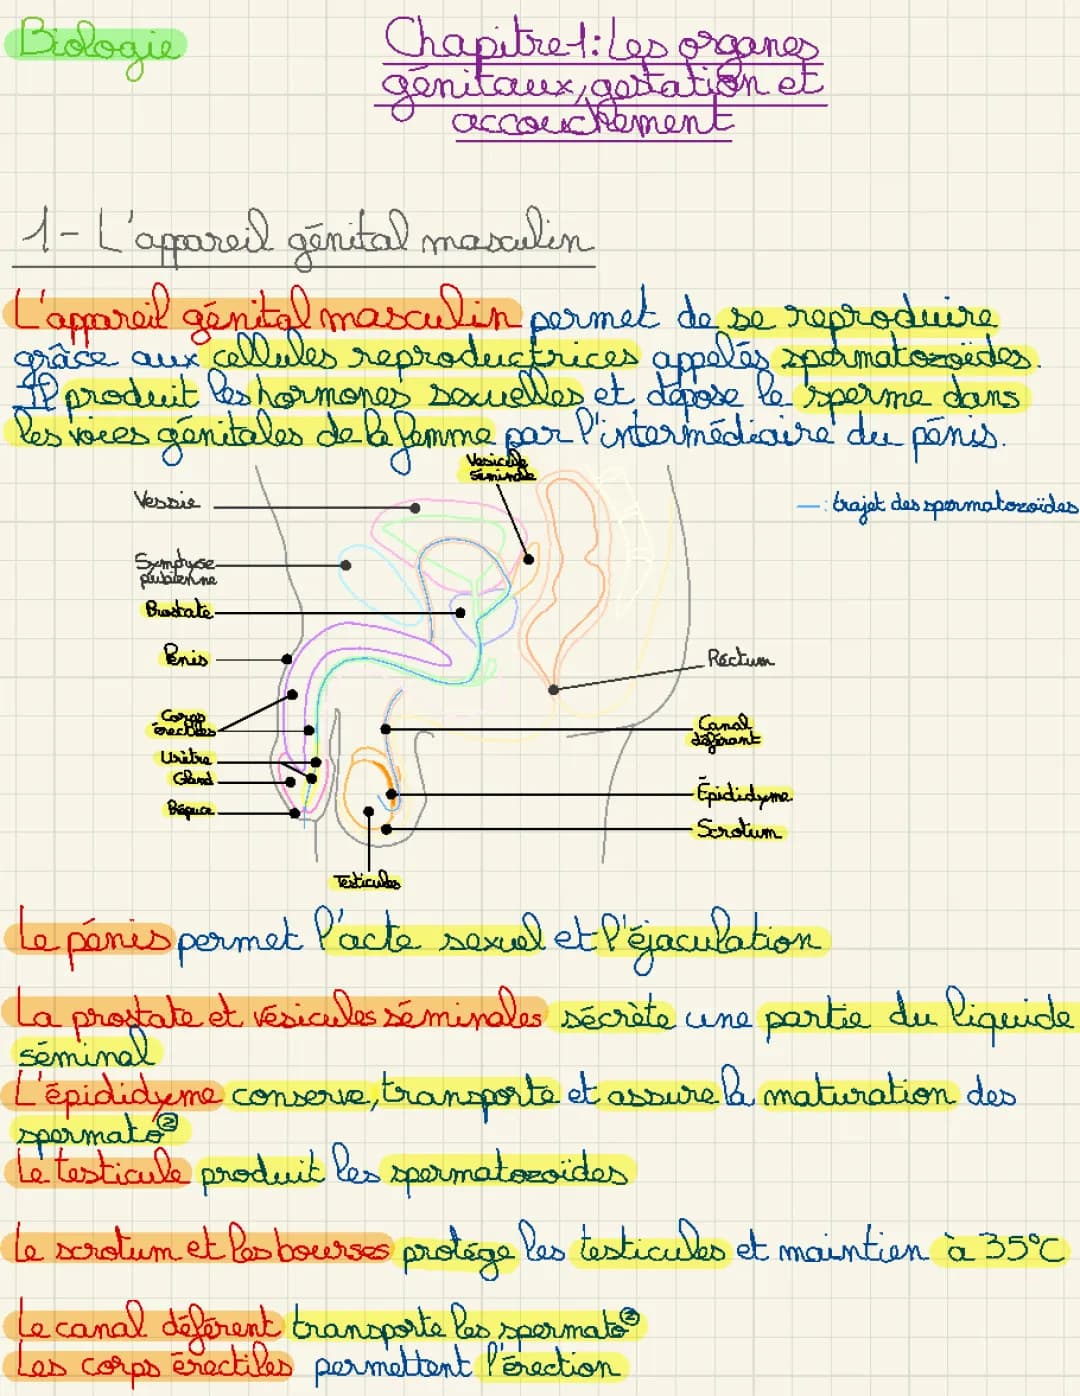 Biologie
Chapitre 1: Les organes
génitaux, gestation et
accouchement
1- L'appareil génital masculin
L'appareil génital masculin permet de se reproduire
grâce aux cellules reproductrices appelés spermatozoïdes.
Il produit les hormones sexuelles et dépose le sperme dans
les voies génitales de la femme par l'intermédiaire du pénis.
Vésicule
séminale
Vessie
— : trajet des spermatozoïdes
Symphyse
pubienne
Prostate
Pénis
Rectum
Corps
érectiles
Canal
déférant
Urètre
Gland
Épididyme
Prépuce
Scrotum
Testicules
Le pénis permet l'acte sexuel et l'éjaculation
La prostate et vésicules séminales sécrète une partie du liquide
séminal
L'épididyme conserve, transporte et assure la maturation des
spermato②
Le testicule produit les spermatozoïdes
Le scrotum et les bourses protège les testicules et maintien à 35°C
Le canal déférent transporte les spermato②
Les corps érectiles permettent l'érection